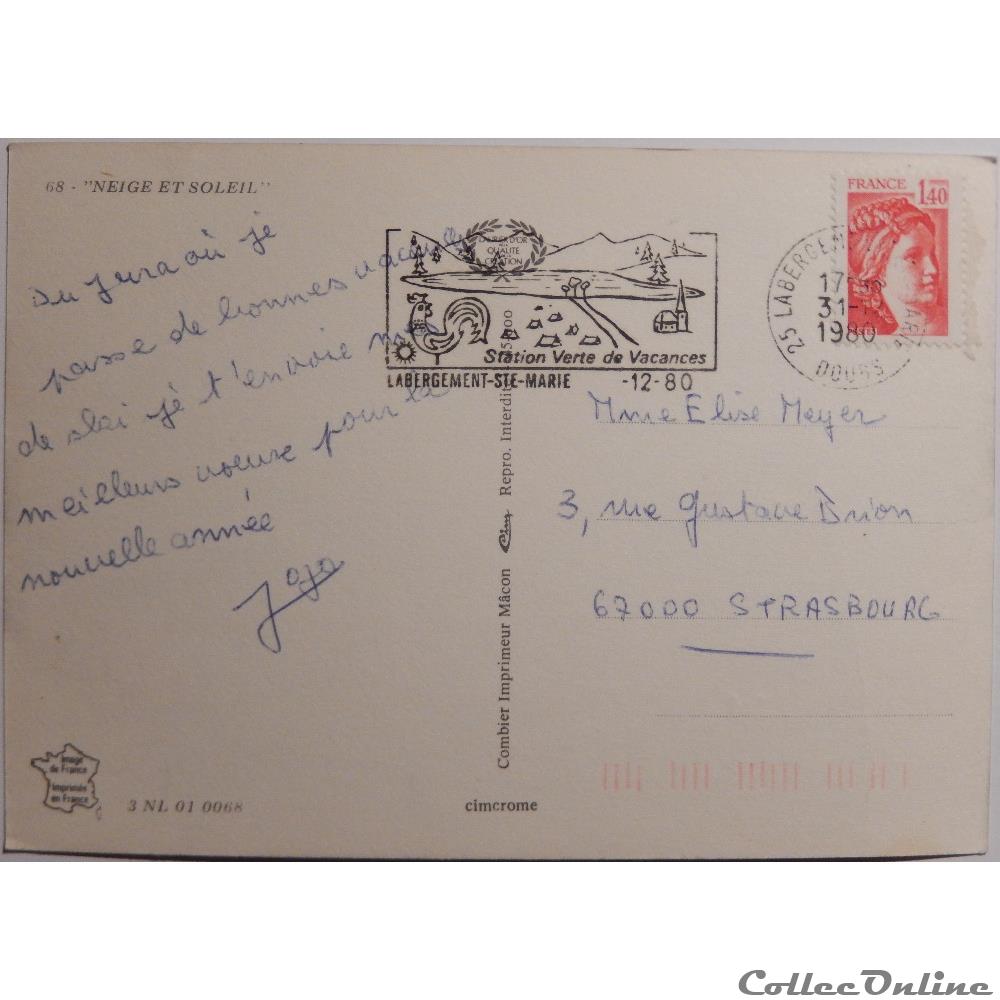 68 - "NEIGE ET SOLEIL"
Du Jura où je
passe de bonnes vacances
de ski je t'envoie mes
meilleurs voeux pour la
nouvelle année
Jojo
Image
de France
Imprimée
en France
3 NL 01 0068
cimcrome
Combier Imprimeur Mâcon Cim Repro. Interdite
QUALITE
CREATION
Station Verte de Vacances
LABERGEMENT-STE-MARIE -12-80
FRANCE
1,40
25 LABERGEMENT
17
31-
1980
DOUBS
Mme Elise Meyer
3, rue Gustave Drion
67000 STRASBOURG
CollecOnline